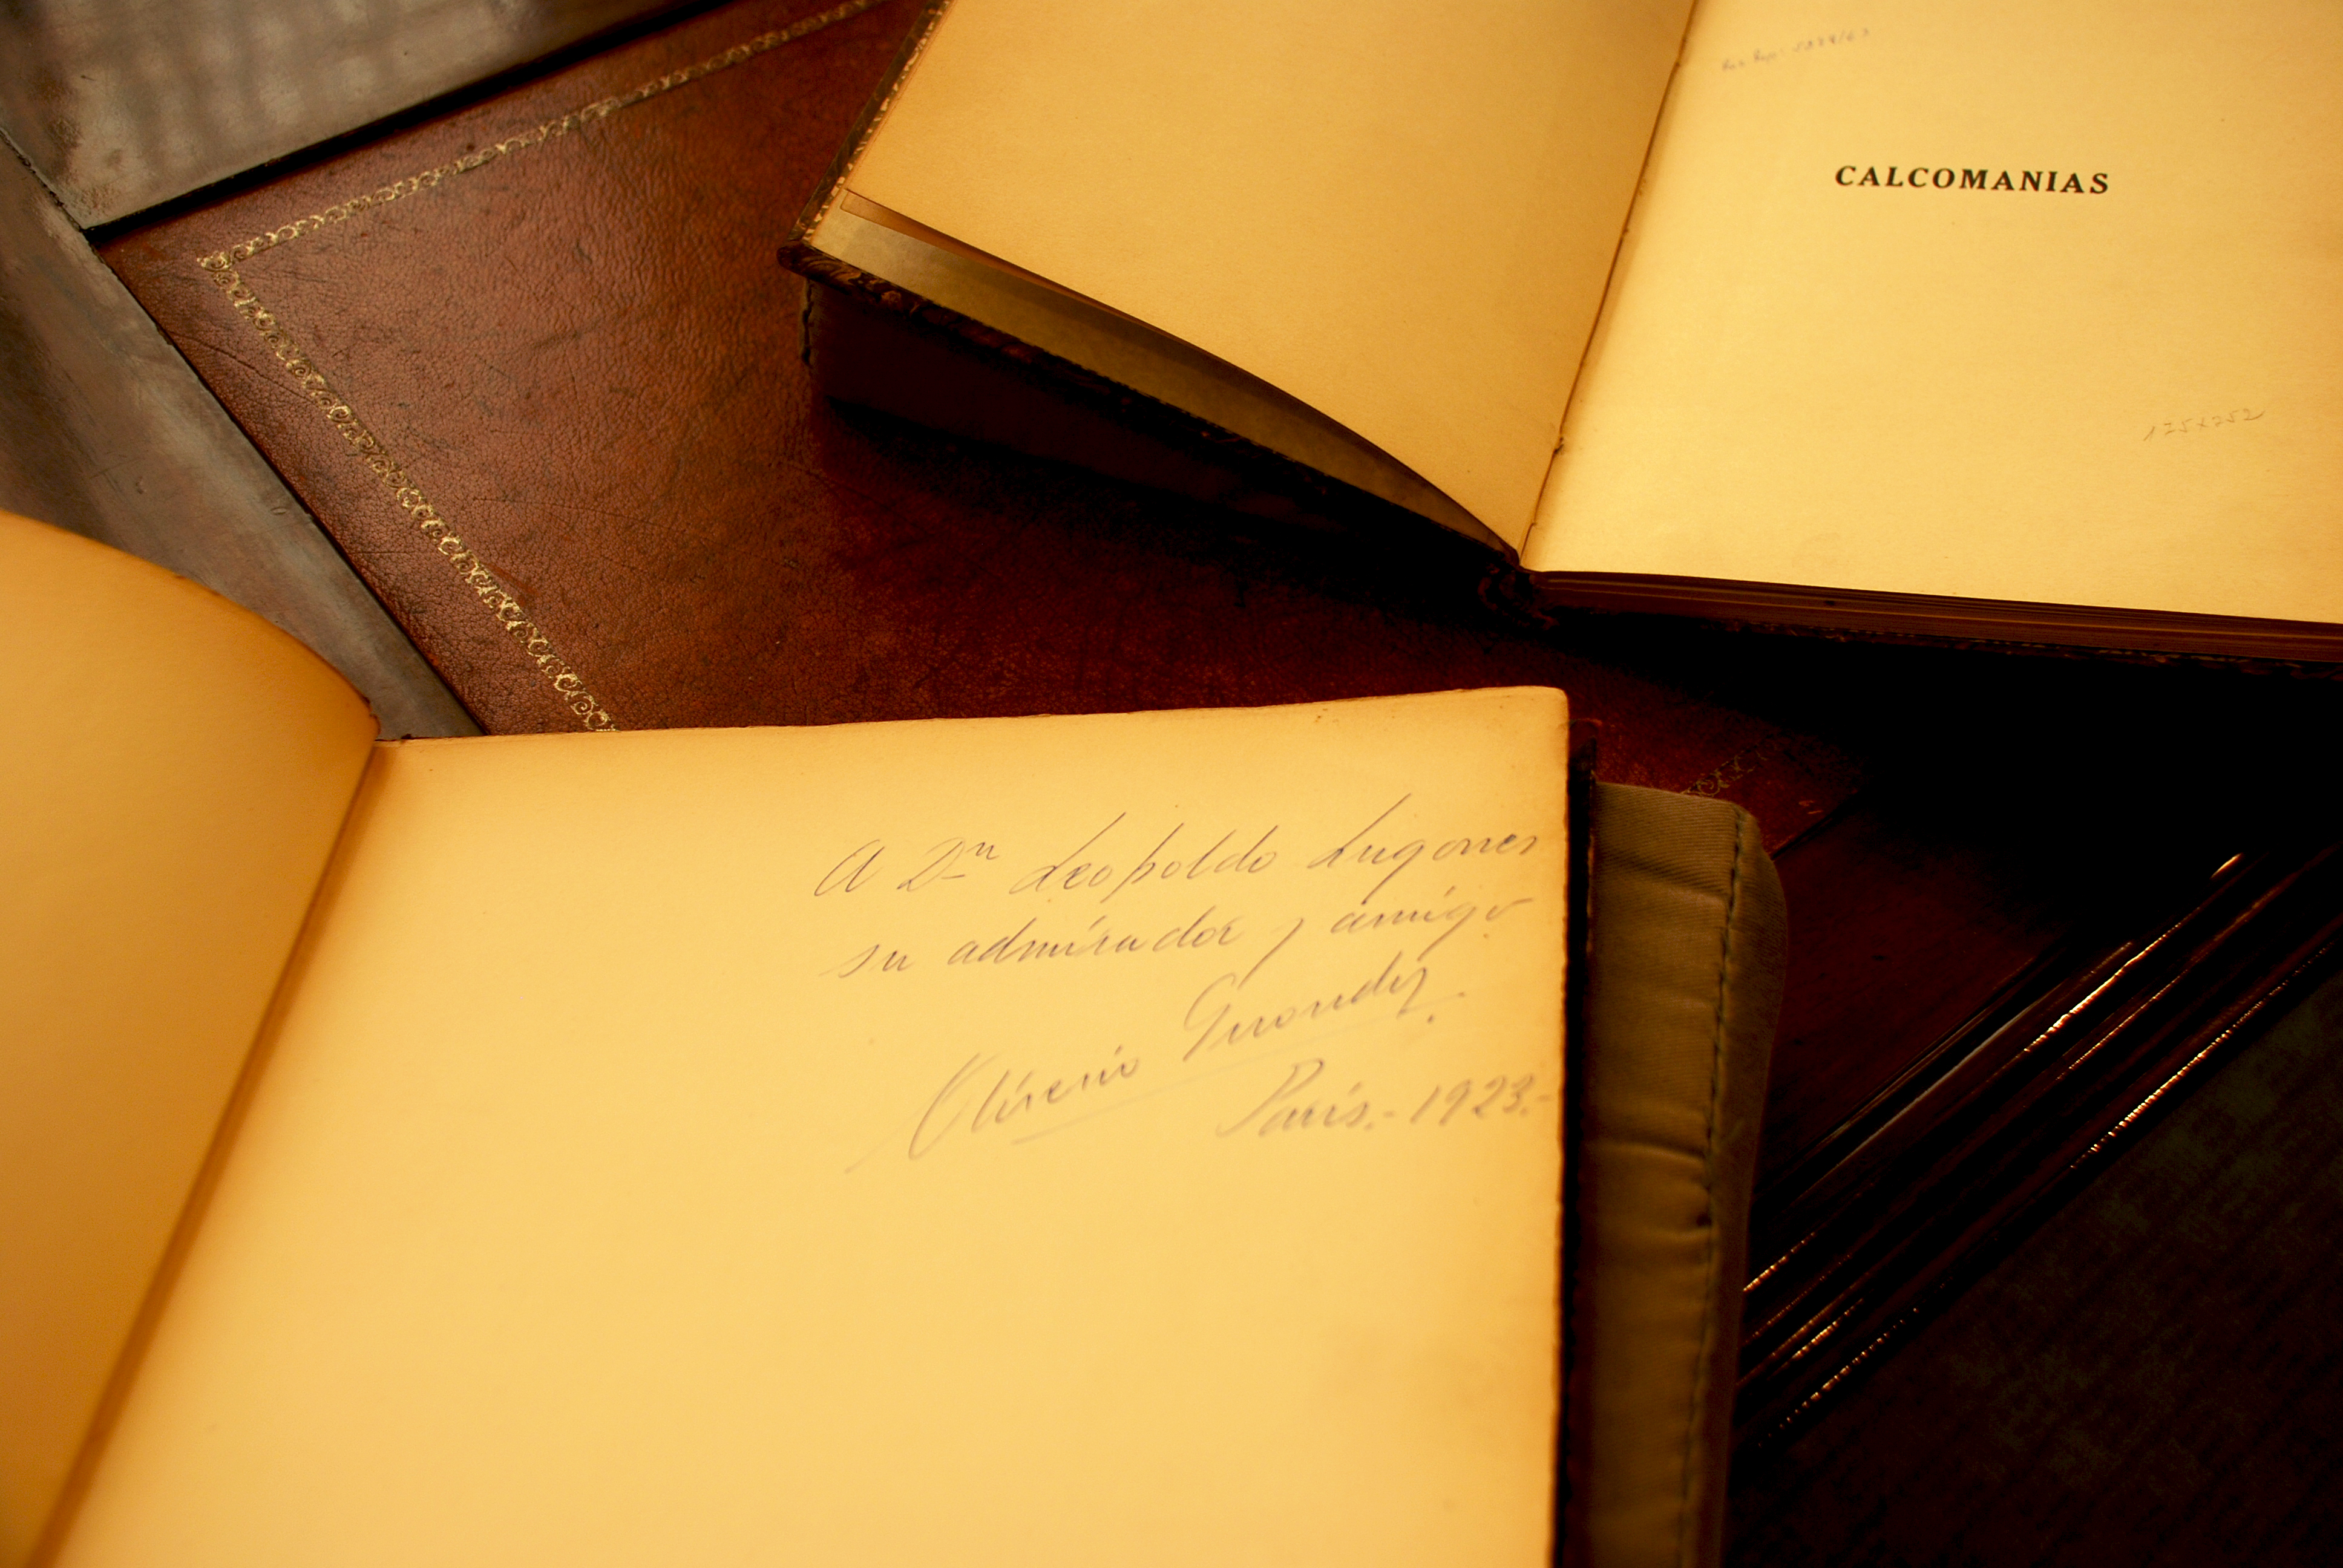 CALCOMANIAS
175x252
A Dn Leopoldo Lugones
su admirador y amigo
Oliverio Girondo.
París.- 1923.-